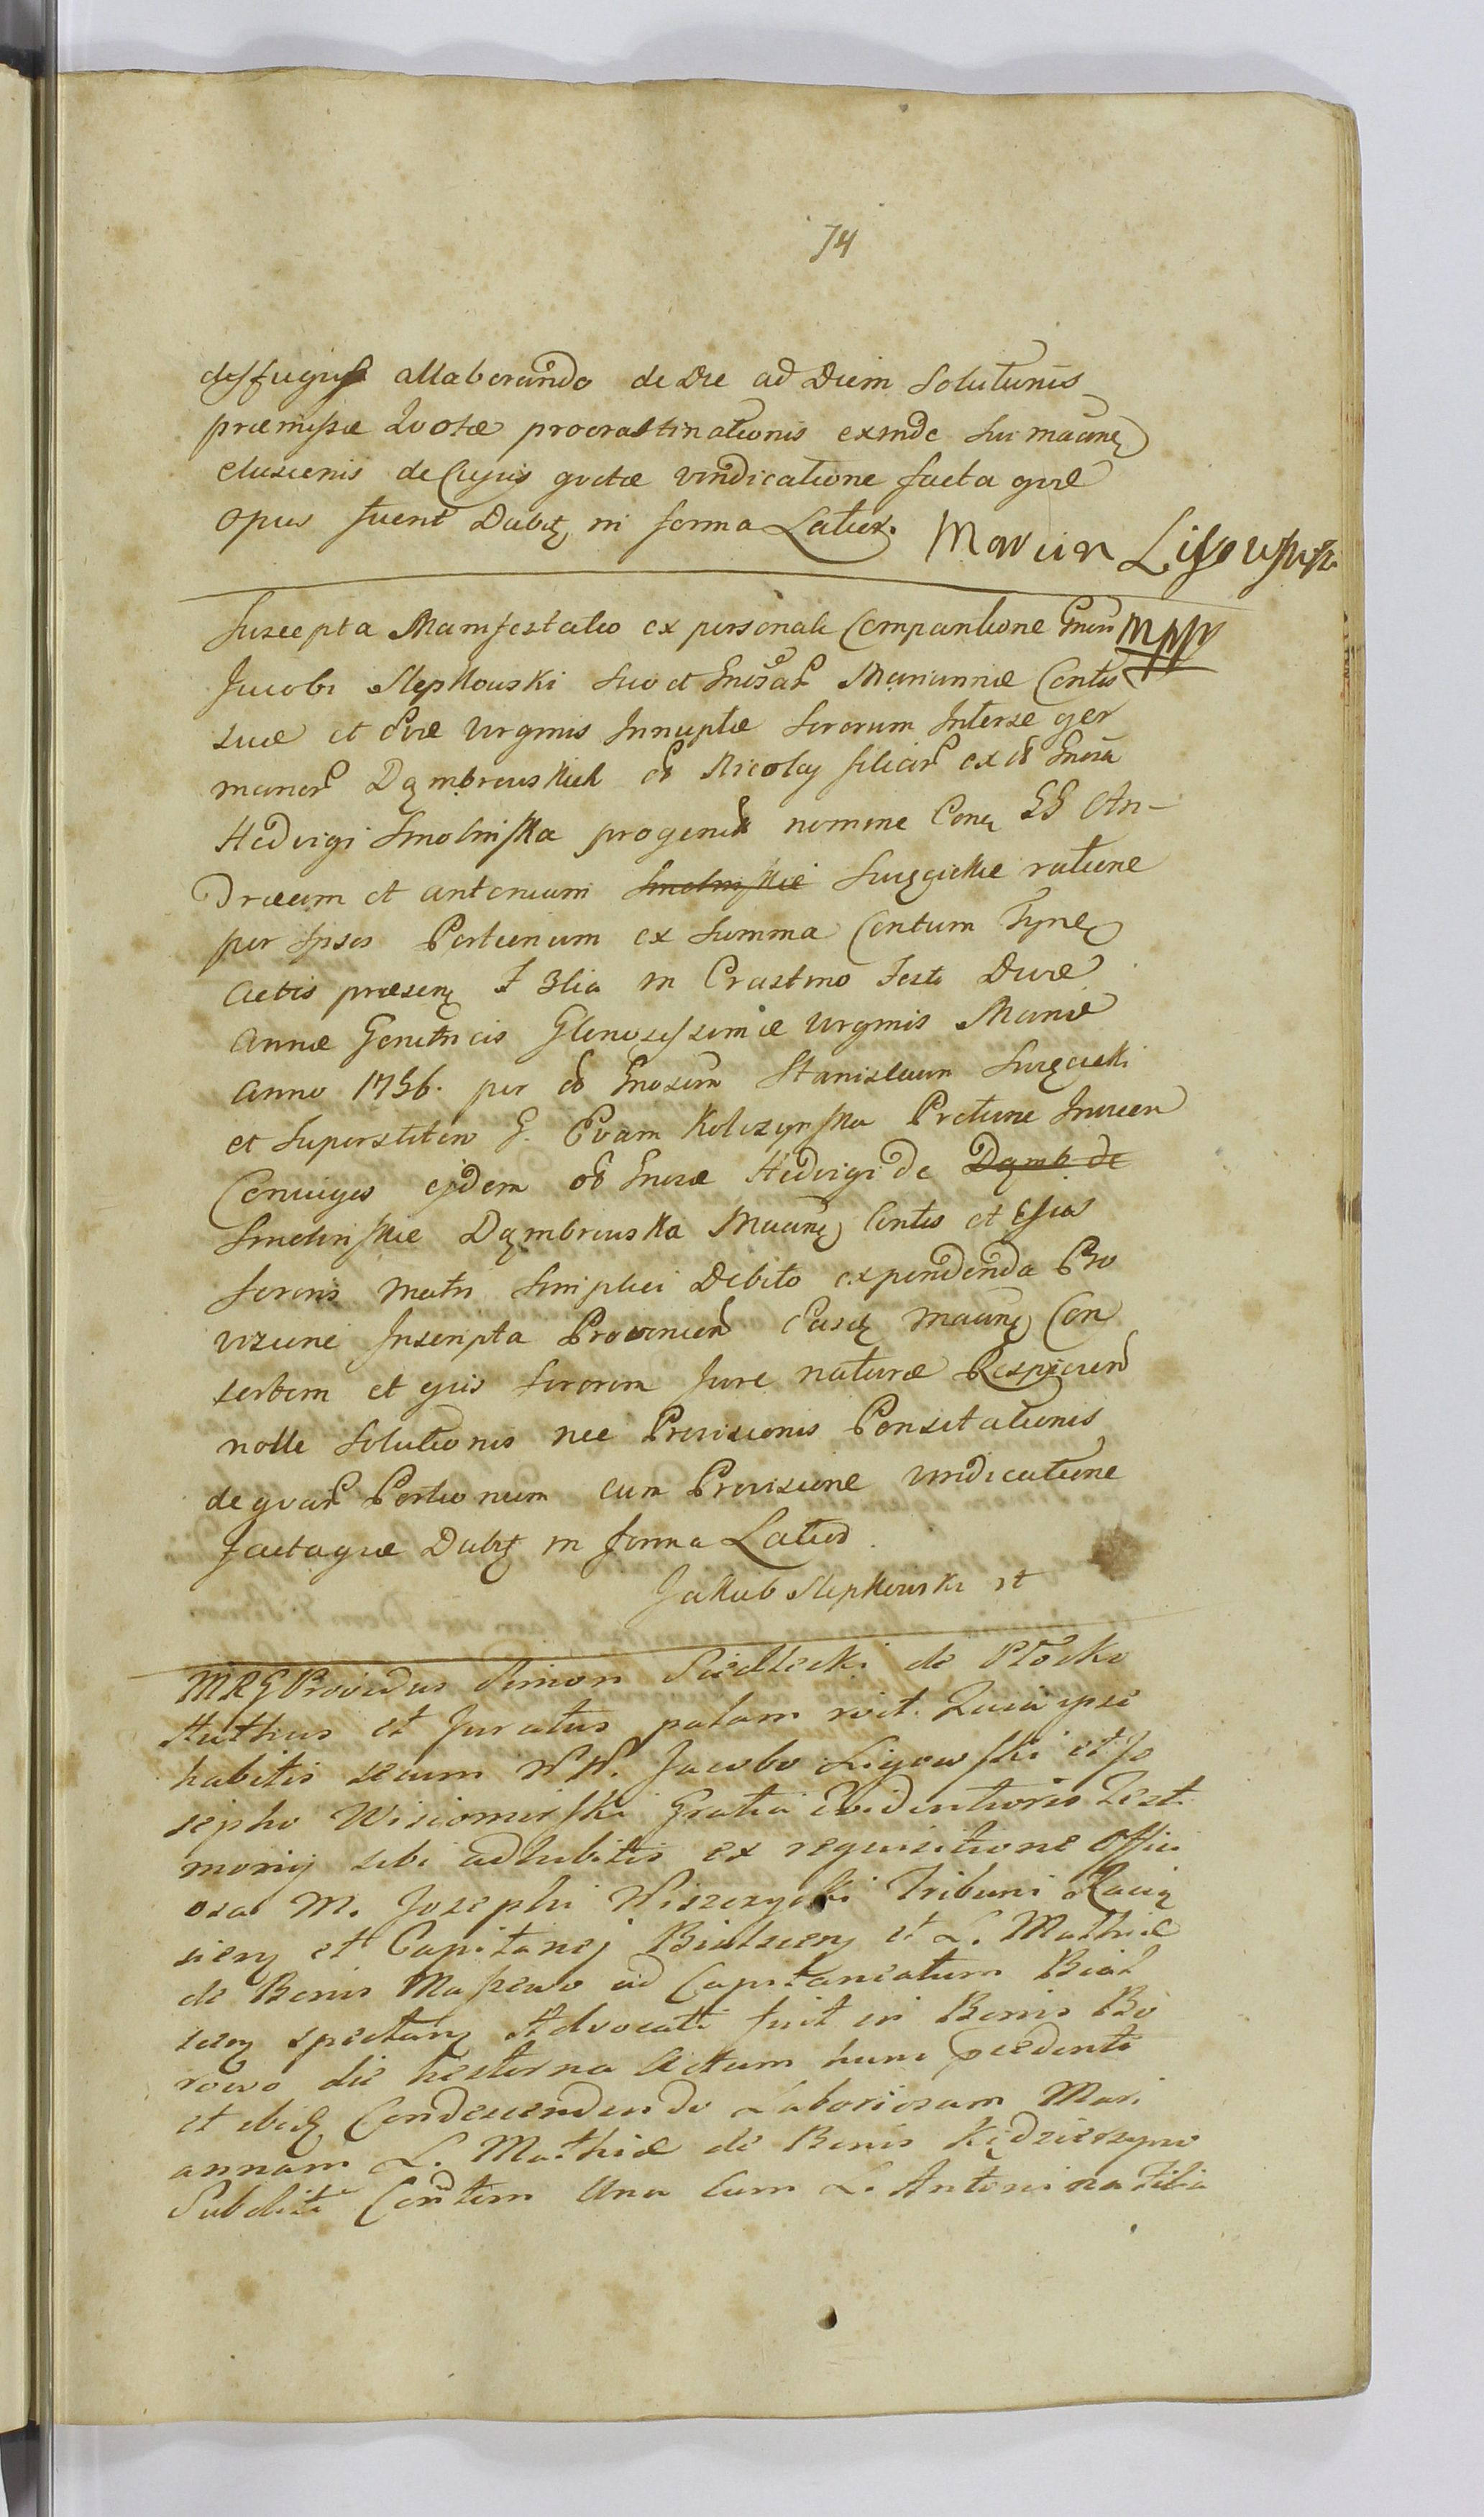 74
allaborando de Die ad Diem Solutionis
præmissæ Quotæ procrastinationis exinde sui
elusionis de Cujus quotæ vindicatione facta quæ
opus fuerit Dabit in forma Latiori. Marcin
Suscepta Manifestatio ex personali Comparitione Gnosi mpp
Jacobi Slepkowski suo et Mariannæ Contis
suæ et Evæ Virginis Innuptæ Sororum Interse ger
manar Dąmbrowskich Nicolaj filiar ex Gnosa
Hedvigi Smolinska progenit nomine Contra GG An-
dream et Antonium Smolinskie Swięcickie ratione
per Ipsos Portionum ex Summa Centum Tynf
Actis præsent F 3lia in Crastino Festi Divæ
Annæ Genitricis Gloriosissimæ Virginis Mariæ
Anno 1756. per Gnosum Stanislaum Swięcicki
et Superstitem G. Evam Kolczynska Pretune Invicem
Conjuges ejdem Gnosæ Hedvigi de Dąmb de
Smolinskie Dąmbrowska Contis et Ejus
Sororis Matri Simplici Debito expendenda Pro
visione Inscripta Provenien Easq Con
sortem et ejus Sororem Jure naturæ Respicien
nolle Solutionis nec Provisionis Pensitationis
de quar Portionum cum Provisione vindicatione
factaque Dabit in forma Latiori
Jakub Slepkowski
MRG Providus Simon Siedlecki de Płocko
Authus et Juratus palam rvit. Quia ipse
habitis secum NN. Jacobo Ligowski et Jo
sepho Wisiomirski Gratia Evidentioris Testi
monij sibi adhibitis ex requisitione Offici
osa M. Josephi Tribuni Raciąż
sien et Capitanej Bialscen et L. Mathiæ
de Bonis Maszewo ad Capitaneatum Bial
scen spectan Advocati fuit in Bonis Bo
rowo die hesterna Actum hunc præcedenti
et ibid Condescendendo Laboriosam Mari
annam L. Mathiæ de Bonis Kędzierzyno
Subditi Contem Una Cum L. Antonina Filia